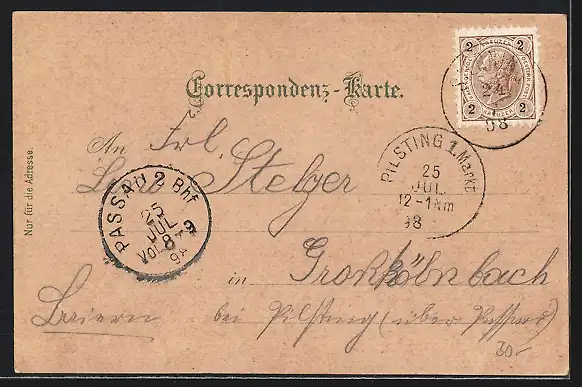 Correspondenz-Karte.
2 2
2 2
24
98
An Frl.
Stelzer
PASSAU 2 Bhf
25
JUL
PILSTING 1. Markt
25
JUL
12-1 Nm
98
in Großköllnbach
Baiern bei Pilsting (über Passau)
30-
Nur für die Adresse.